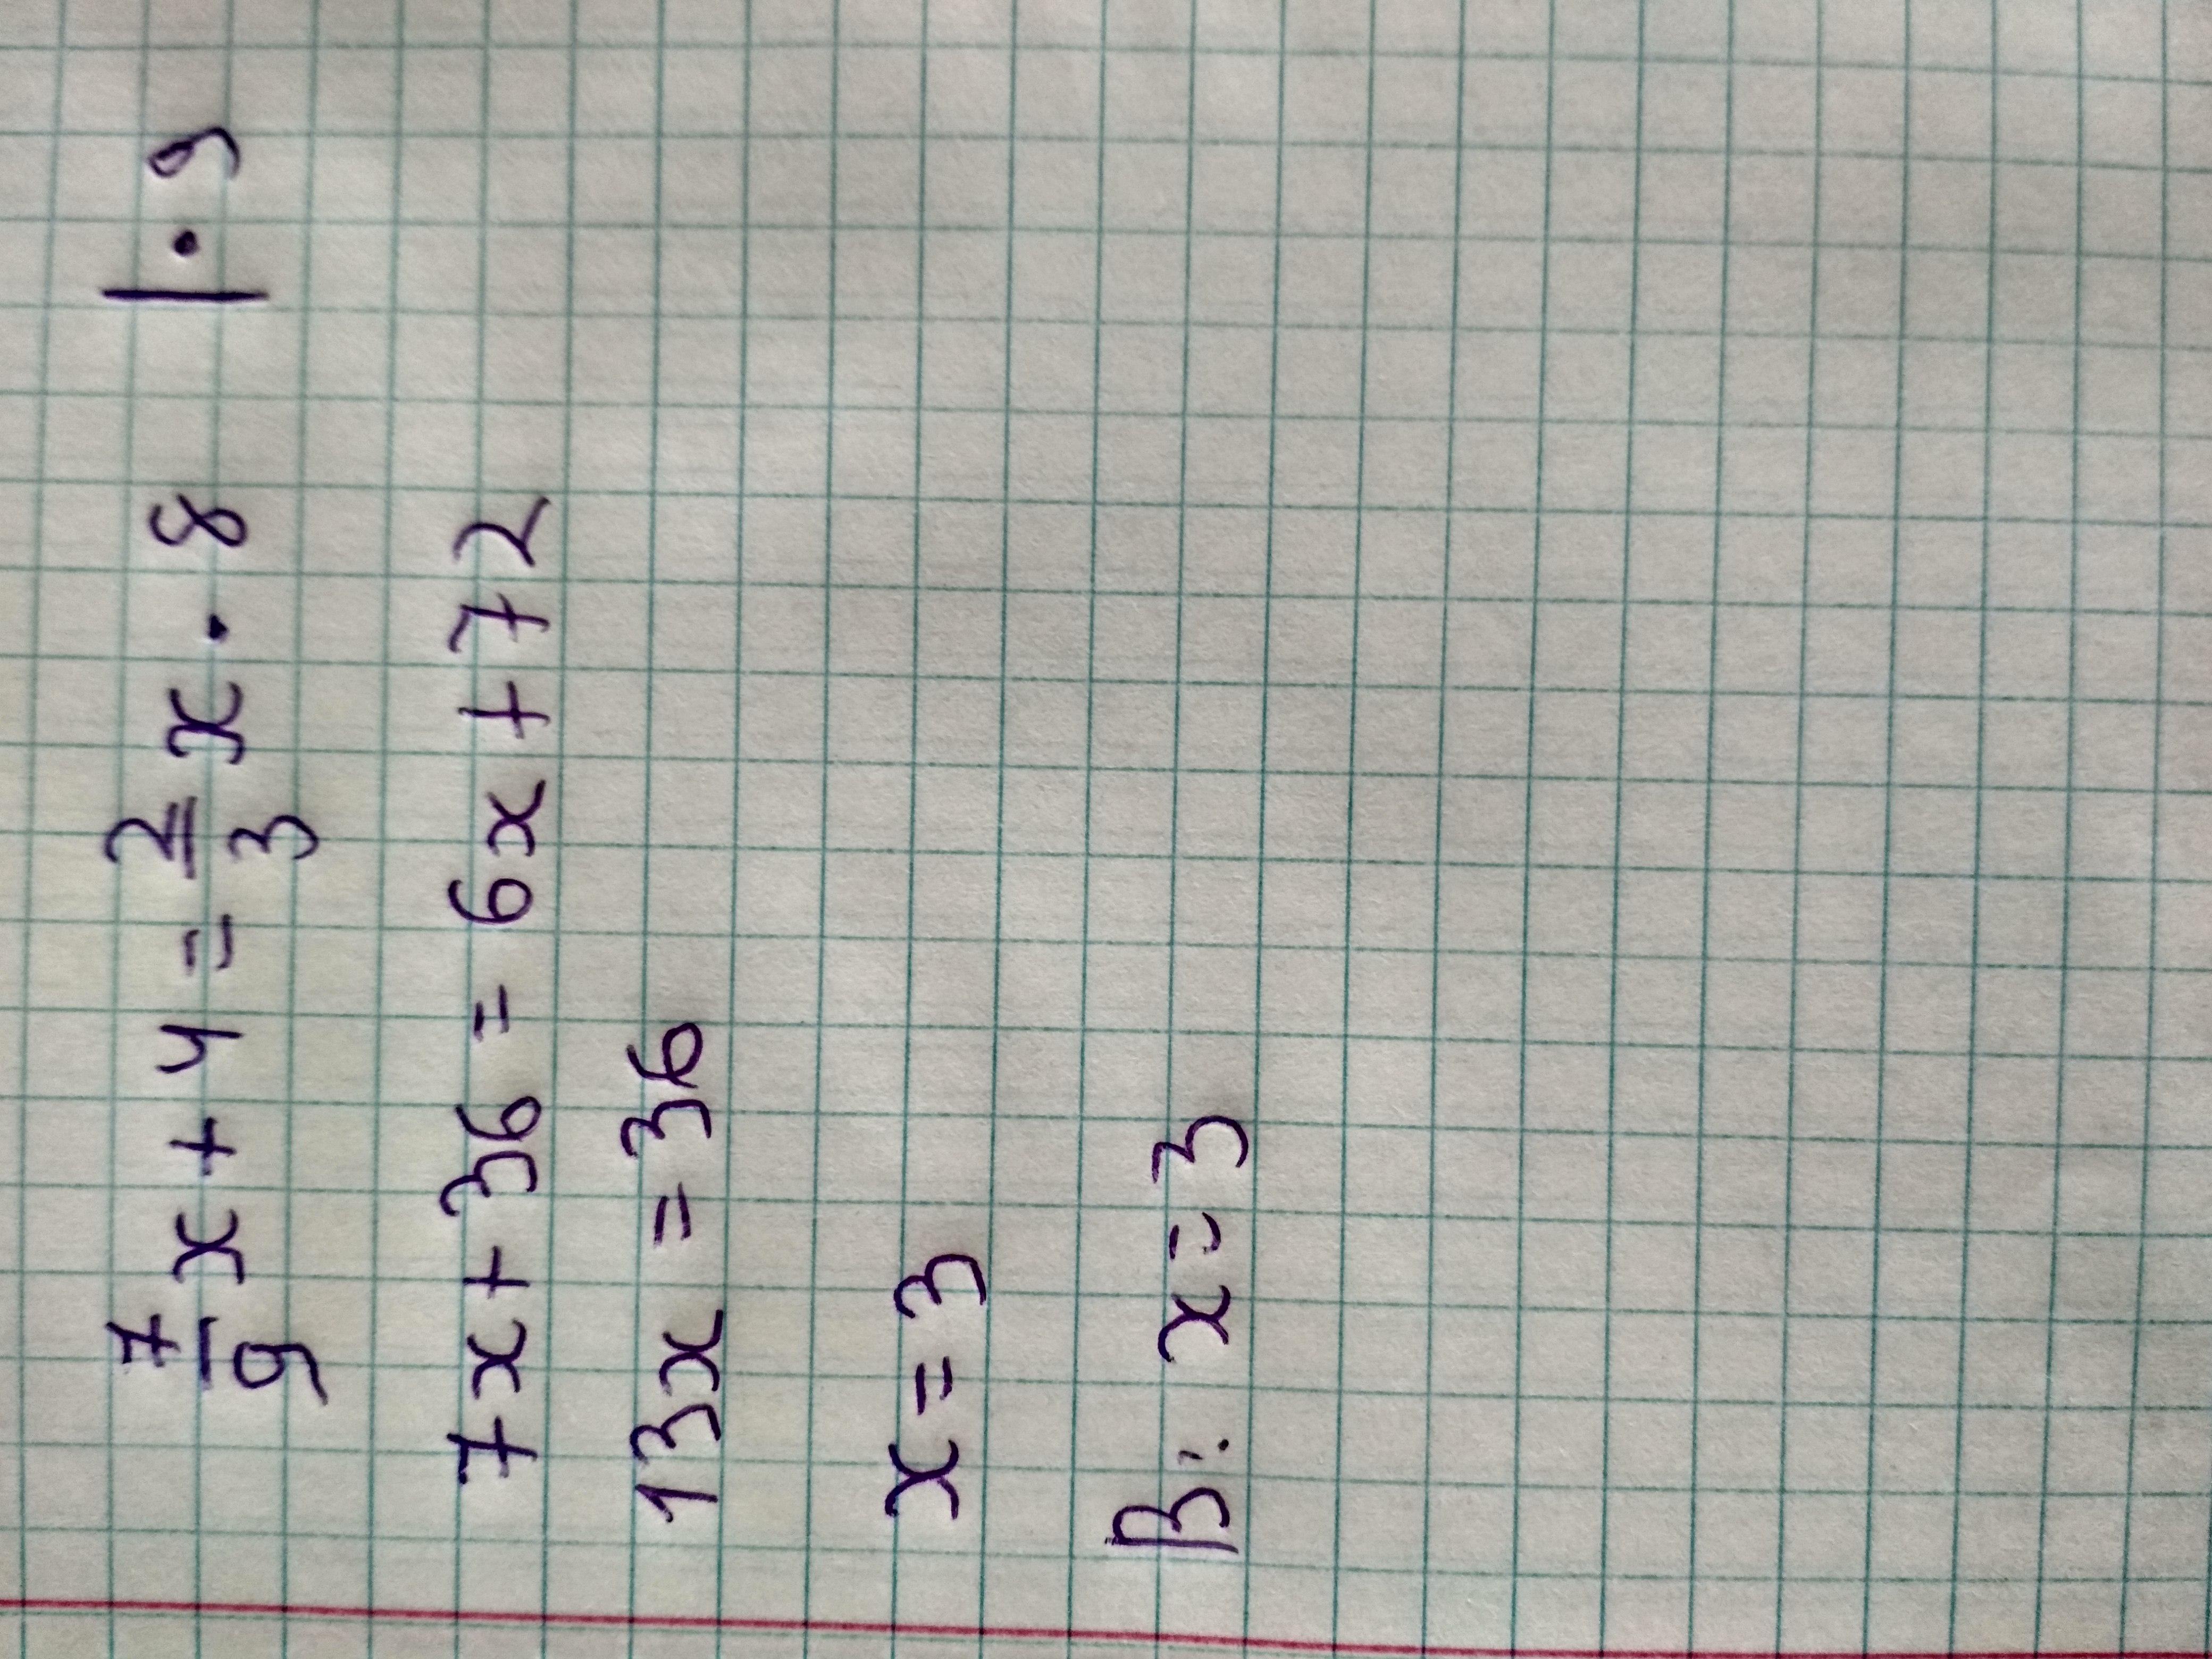 7/9 x + 4 = 2/3 x · 8 | · 9
7x + 36 = 6x + 72
13x = 36
x = 3
В: x = 3